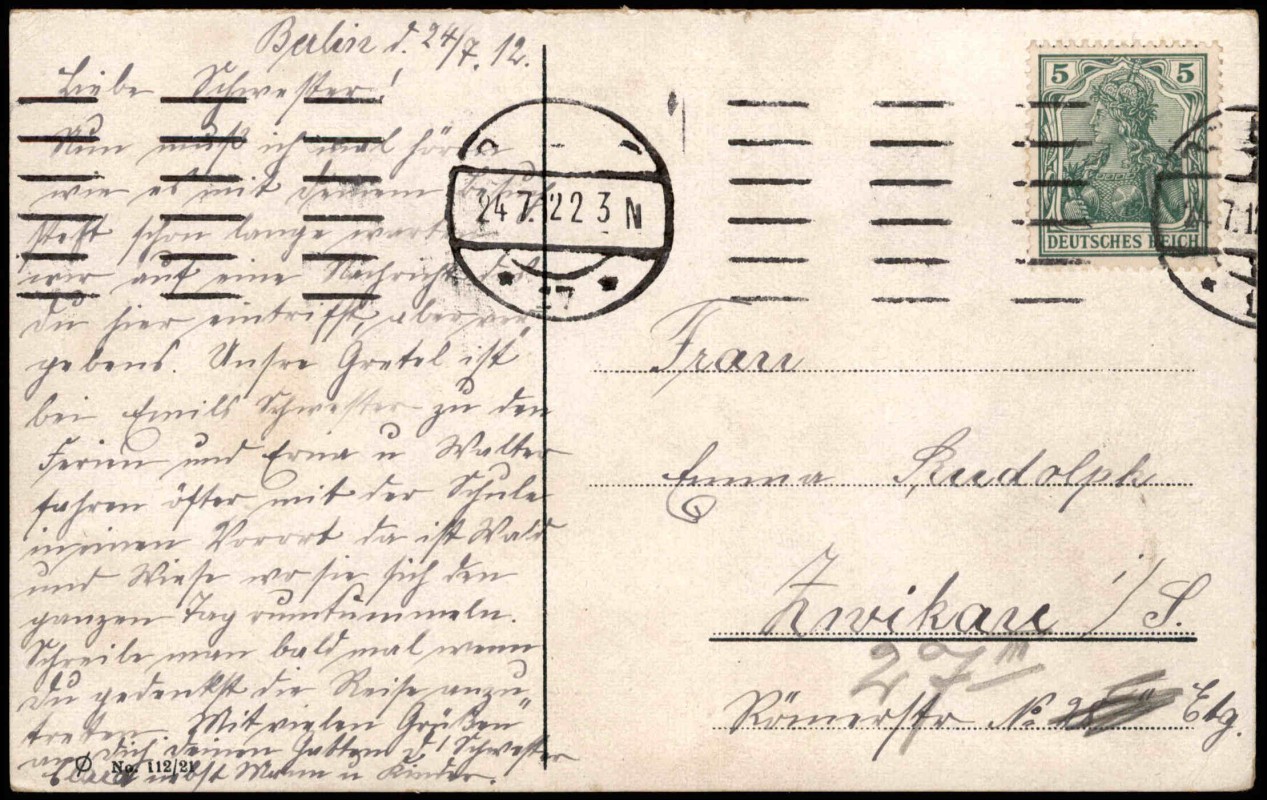 Berlin d. 24/7. 12.
Liebe Schwester!
Nun muß ich mal hören
wie es mit deinem Besuch
steht schon lange warten
wir auf eine Nachricht daß
du hier eintriffst, aber ver-
gebens. Unsre Gretel ist
bei Emils Schwester zu den
Ferien und Erna u Walter
fahren öfter mit der Schule
in einen Vorort da ist Wald
und Wiese wo sie sich den
ganzen Tag rumtummeln.
Schreibe man bald mal wenn
du gedenkst die Reise anzu-
treten. Mit vielen Grüßen
an dich deinen d. Schwester
nebst Mann u Kinder.
No. 112/21
24 7. 12 2 3 N
27
5 5
DEUTSCHES REICH
24.7.12
Frau
Emma Rudolph
Zwikau i/S.
27 III
Römerstr No Etg.